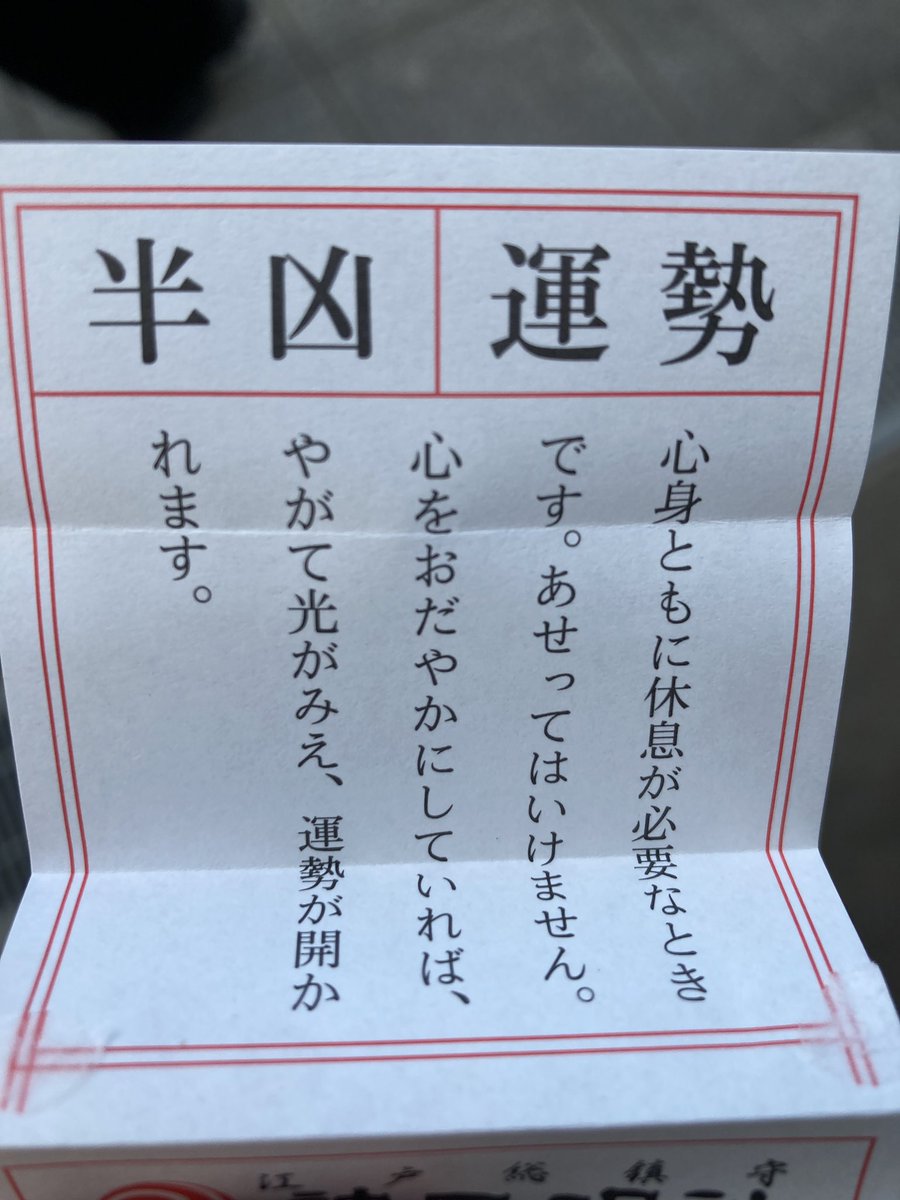 運勢
半凶
心身ともに休息が必要なとき
です。あせってはいけません。
心をおだやかにしていれば、
やがて光がみえ、運勢が開か
れます。
江戸総鎮守